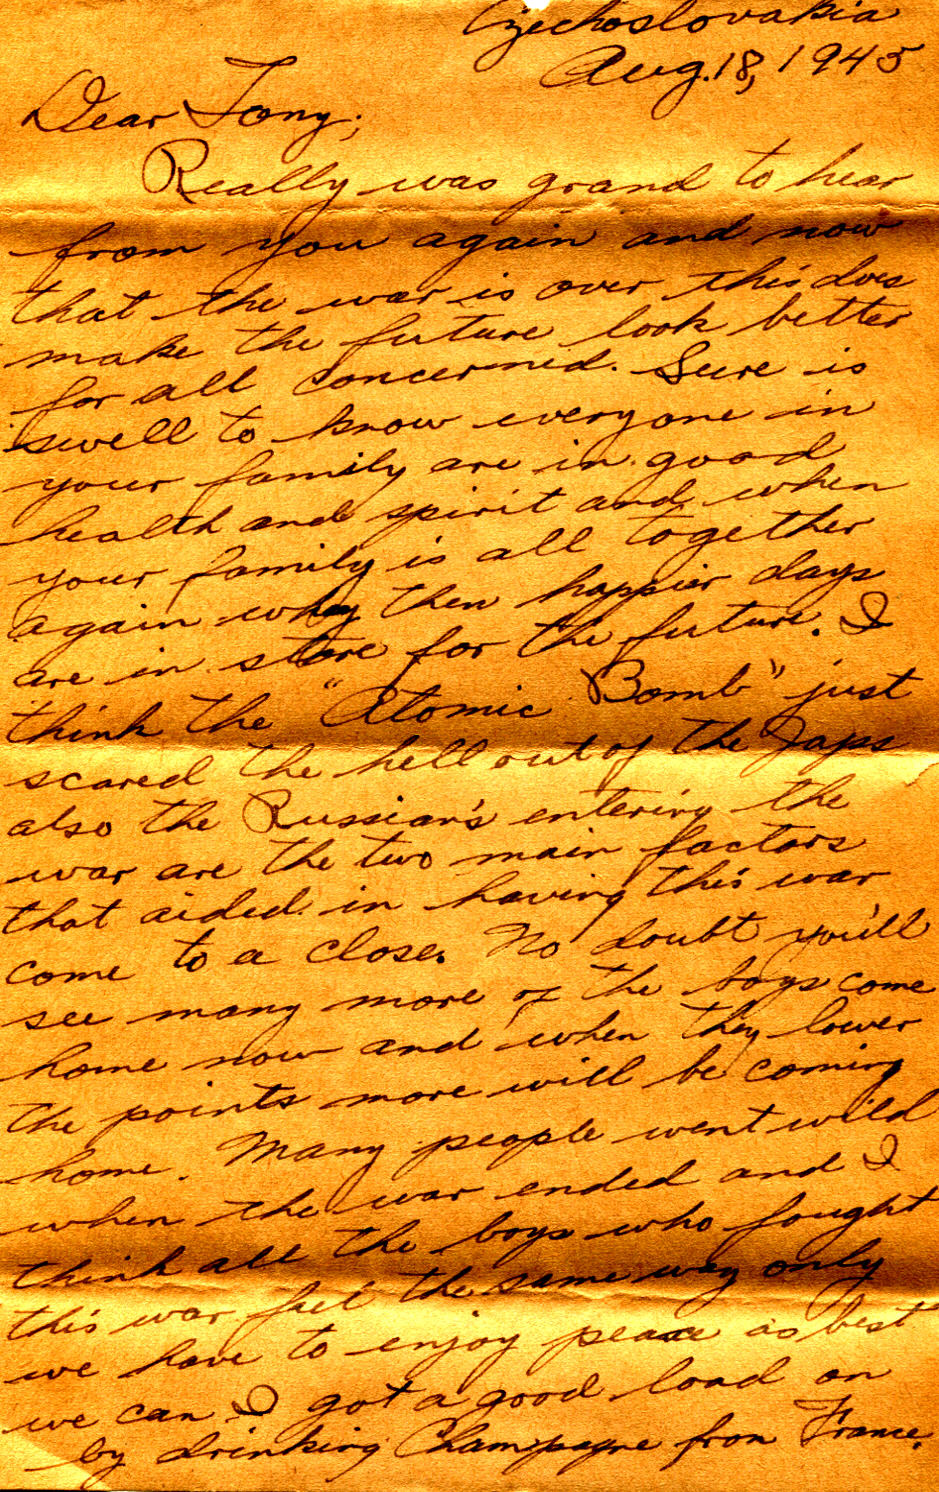 Czechoslovakia
Aug. 18, 1945
Dear Tony;
Really was grand to hear
from you again and now
that the war is over this does
make the future look better
for all concerned. Sure is
swell to know everyone in
your family are in good
health and spirit and when
your family is all together
again why then happier days
are in store for the future. I
think the "Atomic Bomb" just
scared the hell out of the Japs
also the Russian's entering the
war are the two main factors
that aided in having this war
come to a close. No doubt you'll
see many more of the boys come
home now and when they lower
the points more will be coming
home. Many people went wild
when the war ended and I
think all the boys who fought
this war feel the same way only
we have to enjoy peace as best
we can I got a good load on
by drinking Champagne from France.